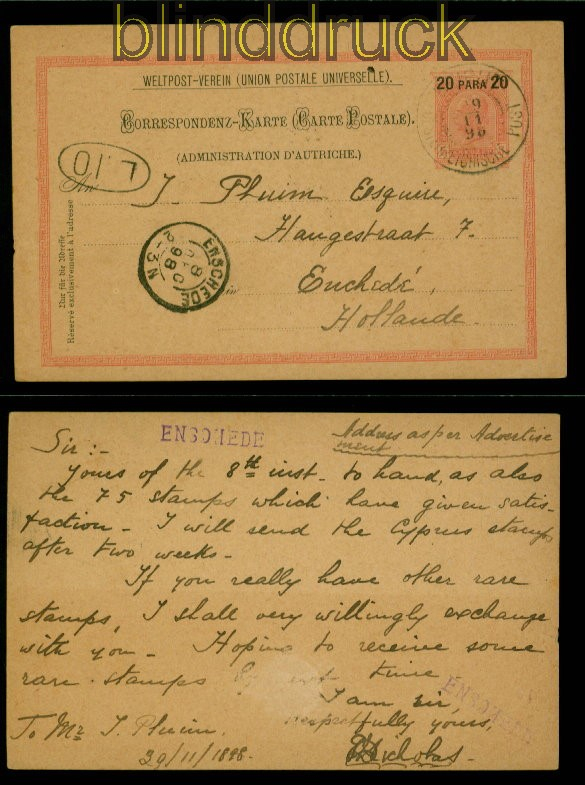 blinddruck
WELTPOST-VEREIN (UNION POSTALE UNIVERSELLE).
20 PARA 20
CORRESPONDENZ-KARTE (CARTE POSTALE).
(ADMINISTRATION D'AUTRICHE.)
L.10
An J. Pluim Esquire,
Haugestraat 7.
in Enchedé,
Hollande.
Nur für die Adresse
Réservé exclusivement à l'adresse
ENSCHEDE
8 DEC 98
2-3N
POST
ENSCHEDE
Address as per Advertise
ment
Sir :-
Yours of the 8th inst. to hand, as also
the 75 stamps which have given satis-
faction - I will send the Cyprus stamps
after two weeks -
If you really have other rare
stamps, I shall very willingly exchange
with you - Hoping to receive some
rare stamps time
I am Sir,
respectfully yours,
Nicholas.
To Mr J. Pluim.
29/11/1898.
ENSCHEDE